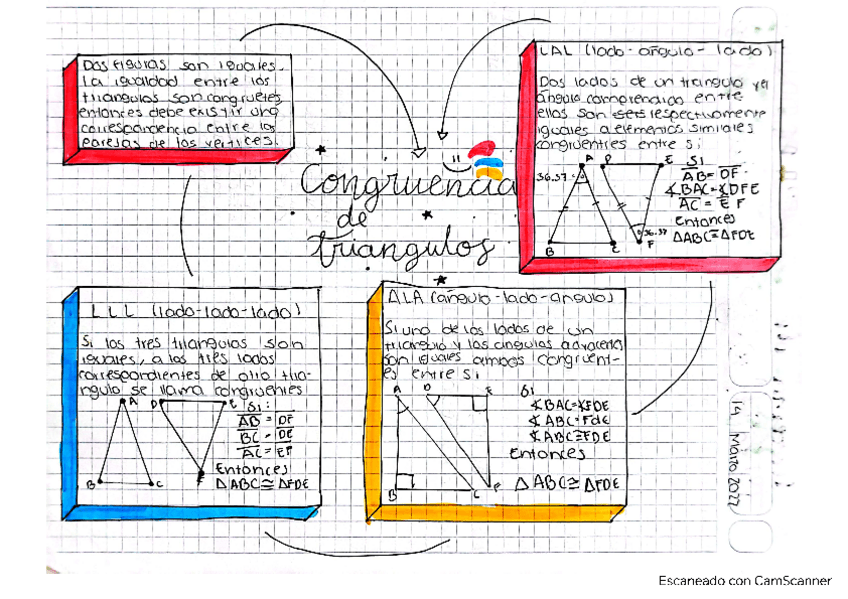 Dos figuras son iguales.
La igualdad entre los
triangulos son congruetes
entonces debe existir una
correspondencia entre las
parejas de los vertices.
Congruencia
de
triangulos
LAL (lado-angulo-lado)
Dos lados de un triangulo y el
angulo comprendido entre
ellos son respectivamente
iguales a elementos similales
congruentes entre si
A D E
36.57°
B C F
36.57
Si
AB = DF
∡BAC = ∡DFE
AC = EF
Entonces
△ABC ≅ △FDE
LLL (lado-lado-lado)
Si los tres triangulos son
iguales, a los tres lados
correspondientes de otro tria-
ngulo se llama congruentes
A D E
B C F
Si:
AB = DF
BC = DE
AC = EF
Entonces
△ABC ≅ △FDE
ALA (angulo-lado-angulo)
Si uno de los lados de un
triangulo y los angulos adyacentes
son iguales ambos congruent-
es entre si
A D E
B C F
Si
∡BAC = ∡FDE
∡ABC = FdE
∡ABC ≅ FDE
Entonces
△ABC ≅ △FDE
14 Marzo 2022
Escaneado con CamScanner